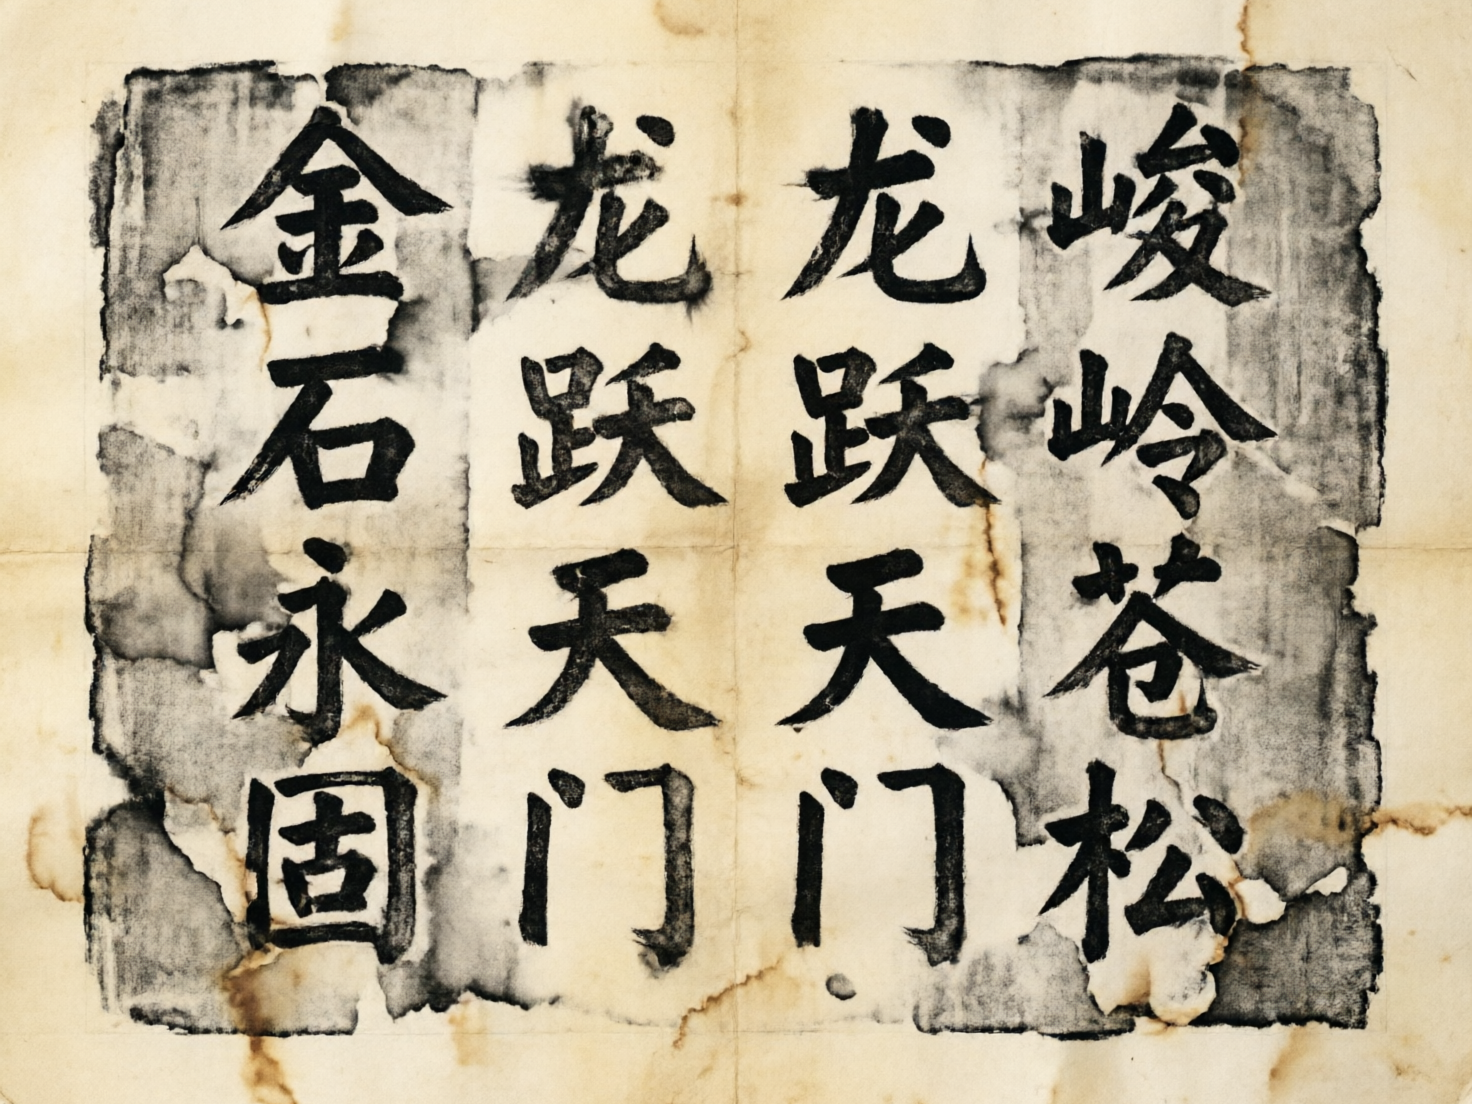 峻岭苍松
龙跃天门
龙跃天门
金石永固